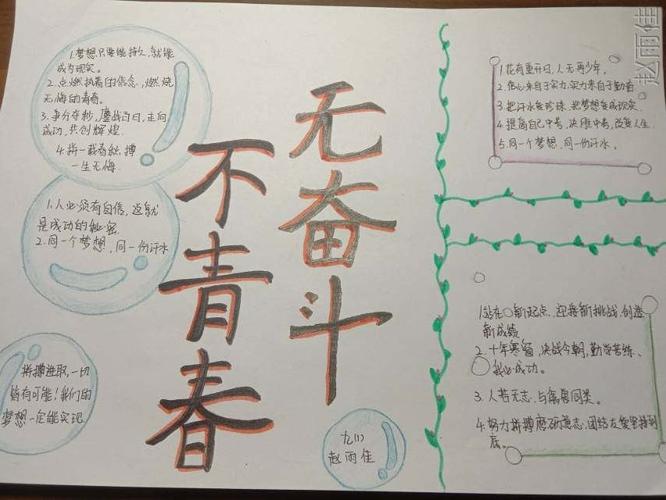 1.梦想只要能持久,就能
成为现实。
2.点燃执着的信念,燃烧
无悔的青春。
3.争分夺秒,鏖战百日,走向
成功,共创辉煌
4.拼一载春秋,搏
一生无悔
1.人必须有自信,这就
是成功的秘密
2.同一个梦想,同一份汗水
拼搏进取,一切
皆有可能!我们的
梦想一定能实现
无奋斗
不青春
九(1)
赵雨佳
赵雨佳
1.花有重开日,人无再少年。
2.信心来自于实力,实力来自于勤奋
3.把汗水变珍珠,把梦想变成现实。
4.提高自己中考,决胜中考,改变人生
5.同一个梦想,同一份汗水。
1.站在新起点,迎接新挑战,创造
新成绩
2.十年寒窗,决战今朝,勤学苦练、
我必成功。
3.人若无志,与禽兽同类。
4.努力拼搏磨砺意志,团结友爱坚持到
底。